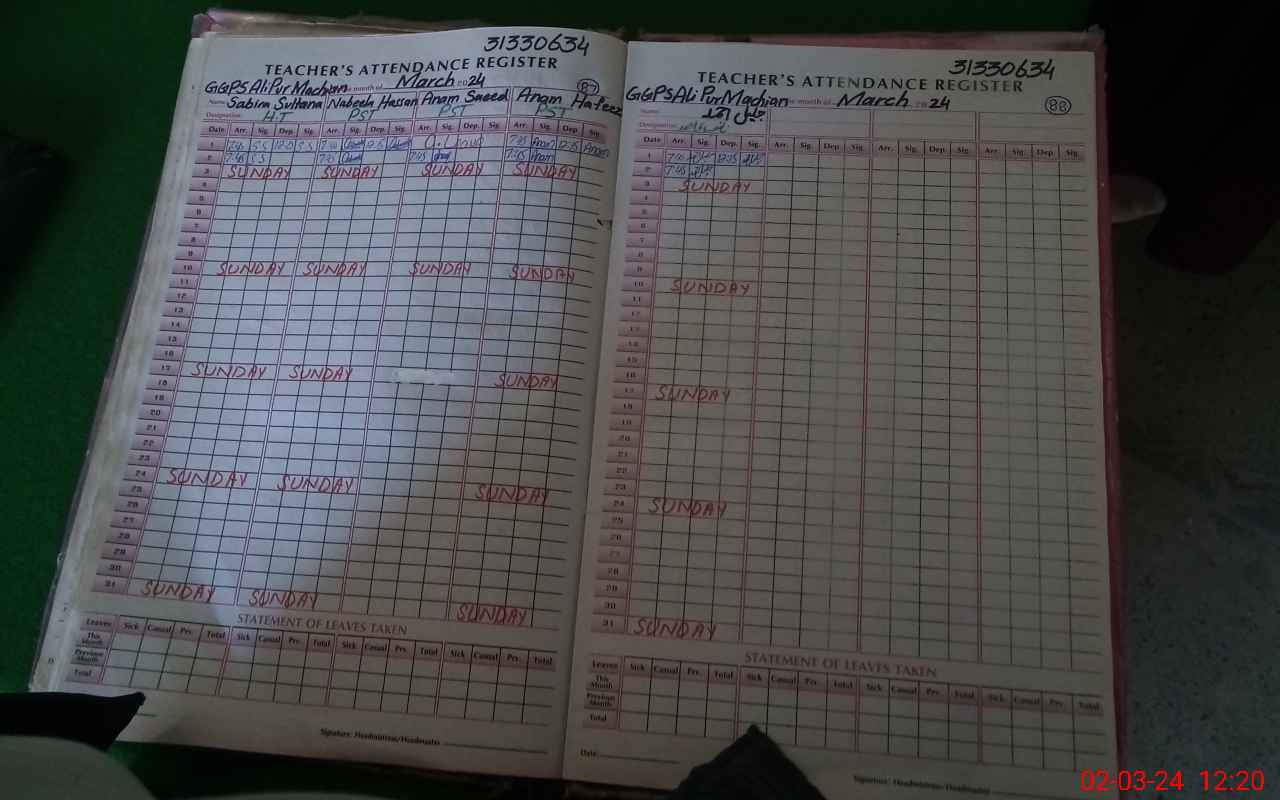 31330634
TEACHER'S ATTENDANCE REGISTER
GGPS AliPur Machian the month of March 2024
87
Name Sabira Sultana Nabeela Hassan Anam Saeed Anam Hafeez
Designation H.T PST PST PST
Date Arr. Sig. Dep. Sig. Arr. Sig. Dep. Sig. Arr. Sig. Dep. Sig. Arr. Sig. Dep. Sig.
1 S.S S.S 7:45 Anam 12:15 Anam
2 7:45 S.S 7:45 7:45 7:45 Anam
3 SUNDAY SUNDAY SUNDAY SUNDAY
4
5
6
7
8
9
10 SUNDAY SUNDAY SUNDAY SUNDAY
11
12
13
14
15
16
17 SUNDAY SUNDAY SUNDAY
18
19
20
21
22
23
24 SUNDAY SUNDAY SUNDAY
25
26
27
28
29
30
31 SUNDAY SUNDAY SUNDAY
STATEMENT OF LEAVES TAKEN
Leaves Sick Casual Prv. Total Sick Casual Prv. Total Sick Casual Prv. Total Sick Casual Prv. Total
This Month
Previous Month
Total
Signature: Headmistress/Headmaster
31330634
TEACHER'S ATTENDANCE REGISTER
GGPS AliPur Machian the month of March 2024
88
Name
Designation
Date Arr. Sig. Dep. Sig. Arr. Sig. Dep. Sig. Arr. Sig. Dep. Sig. Arr. Sig. Dep. Sig.
1 12:15
2 7:45
3 SUNDAY
4
5
6
7
8
9
10 SUNDAY
11
12
13
14
15
16
17 SUNDAY
18
19
20
21
22
23
24 SUNDAY
25
26
27
28
29
30
31 SUNDAY
STATEMENT OF LEAVES TAKEN
Leaves Sick Casual Prv. Total Sick Casual Prv. Total Sick Casual Prv. Total Sick Casual Prv. Total
This Month
Previous Month
Total
Date
Signature: Headmistress/Headmaster
02-03-24 12:20